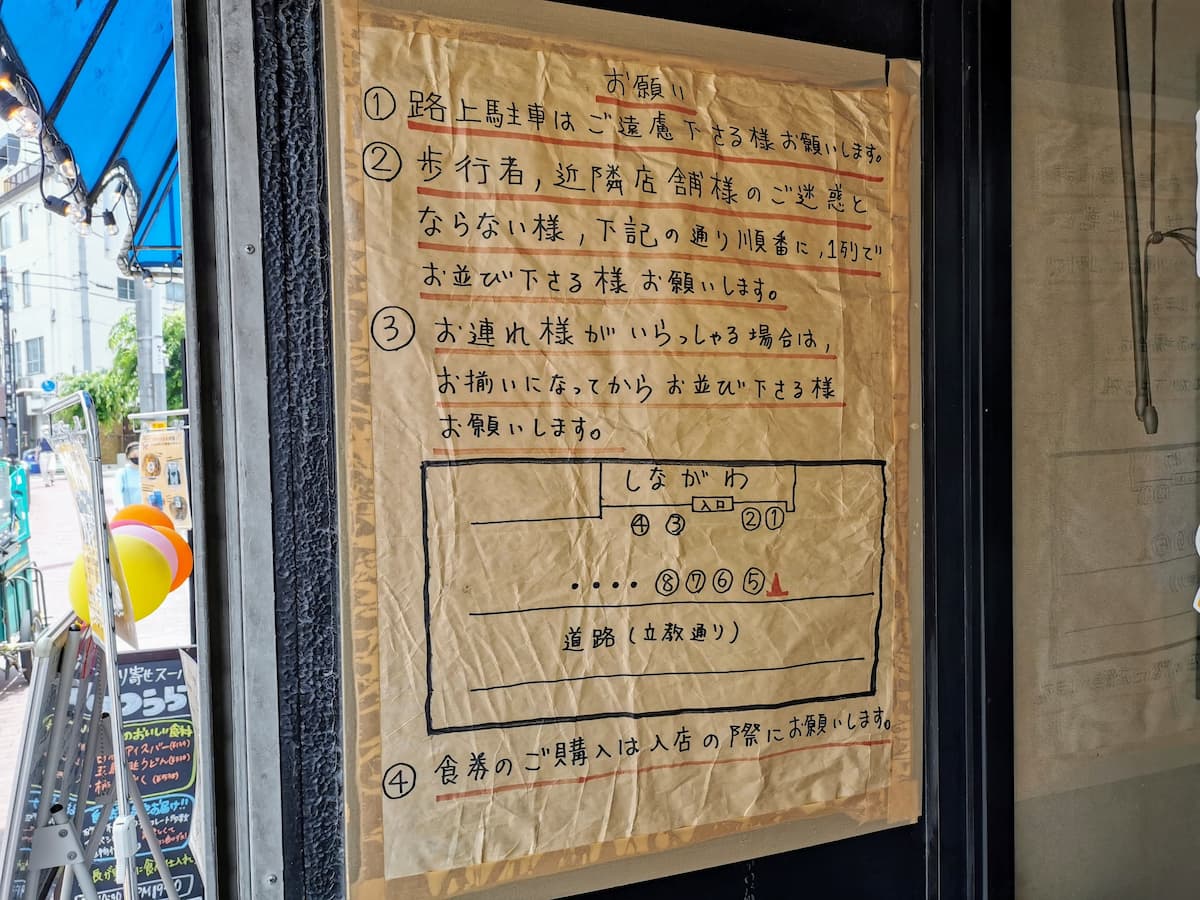 お願い
① 路上駐車はご遠慮下さる様お願いします。
② 歩行者,近隣店舗様のご迷惑と
ならない様,下記の通り順番に,1列で
お並び下さる様お願いします。
③ お連れ様がいらっしゃる場合は,
お揃いになってからお並び下さる様
お願いします。
しながわ
入口
④ ③ ② ①
・・・・ ⑧ ⑦ ⑥ ⑤
道路(立教通り)
④ 食券のご購入は入店の際にお願いします。
り寄せスーパ
のおいしい食料
アイスバー
うどん
お届け!!